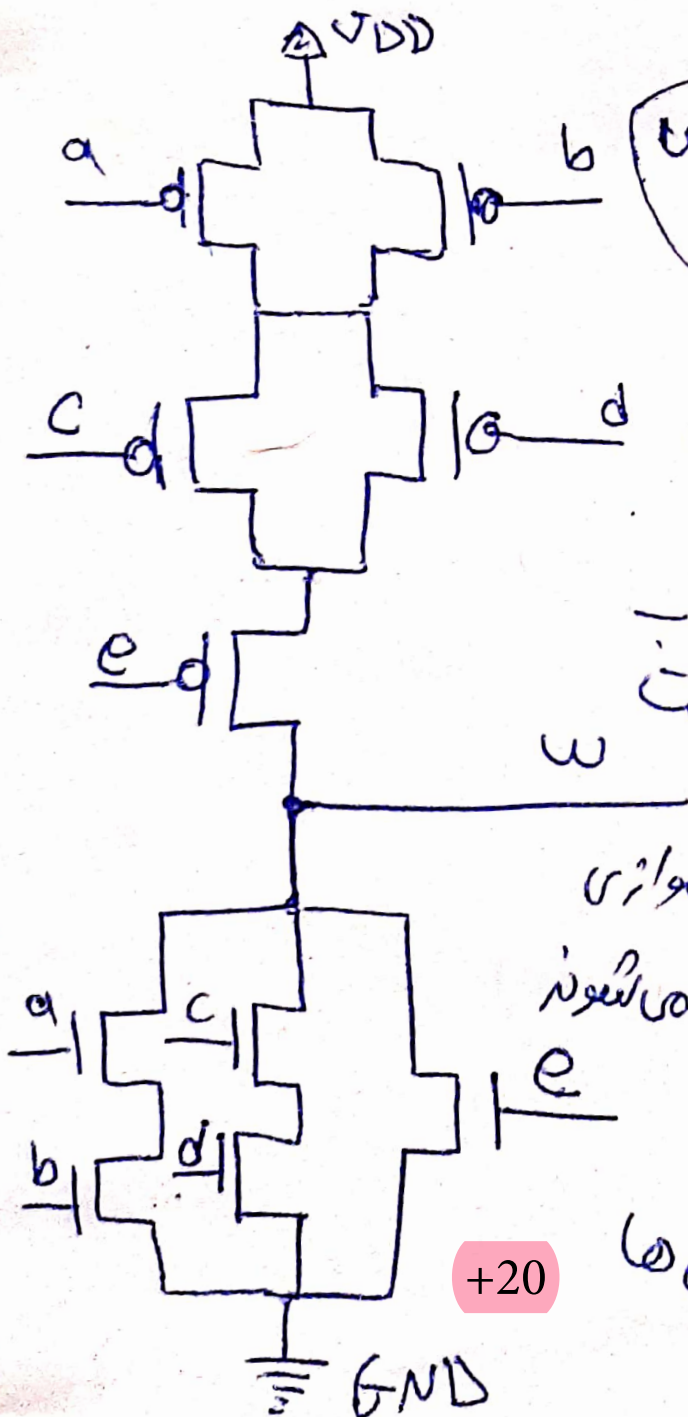 VDD
a b
c d
e
w
موازی
a c می‌شوند
e
b d
+20
GND